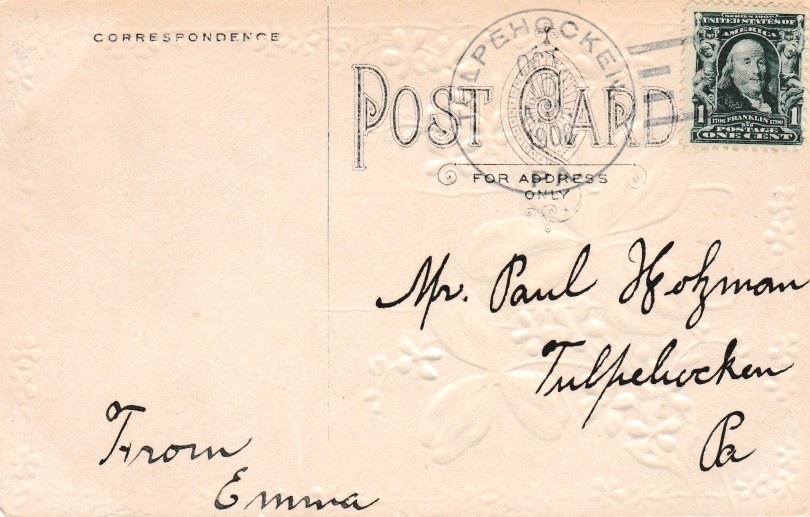 CORRESPONDENCE
TULPEHOCKEN
OCT
1908
PA
POST CARD
FOR ADDRESS
ONLY
SERIES 1902
UNITED STATES OF
AMERICA
1706 FRANKLIN 1790
1 1
POSTAGE
ONE CENT
Mr. Paul Holzman
Tulpehocken
Pa
From
Emma